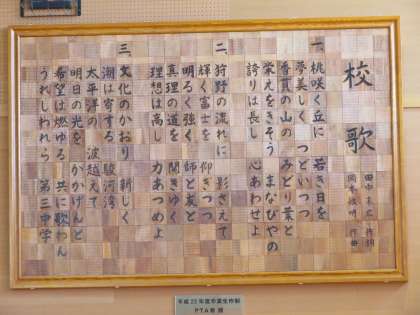 校歌
田中末広 作詞
岡本敏明 作曲
一、桃咲く丘に 若き日を
夢美しく つどいつつ
香貫の山の みどり葉と
栄えをきそう まなびやの
誇りは長し 心あわせよ
二、狩野の流れに 影さえて
輝く富士を 仰ぎつつ
明るく強く 師と友と
真理の道を 聞きゆく
理想は高し 力あつめよ
三、文化のかおり 新しく
潮は寄する 駿河湾
太平洋の 波越えて
明日の光を かかげんと
希望は燃ゆる 共に歌わん
うれしわれら 第三中学
平成23年度卒業生作制
PTA寄贈